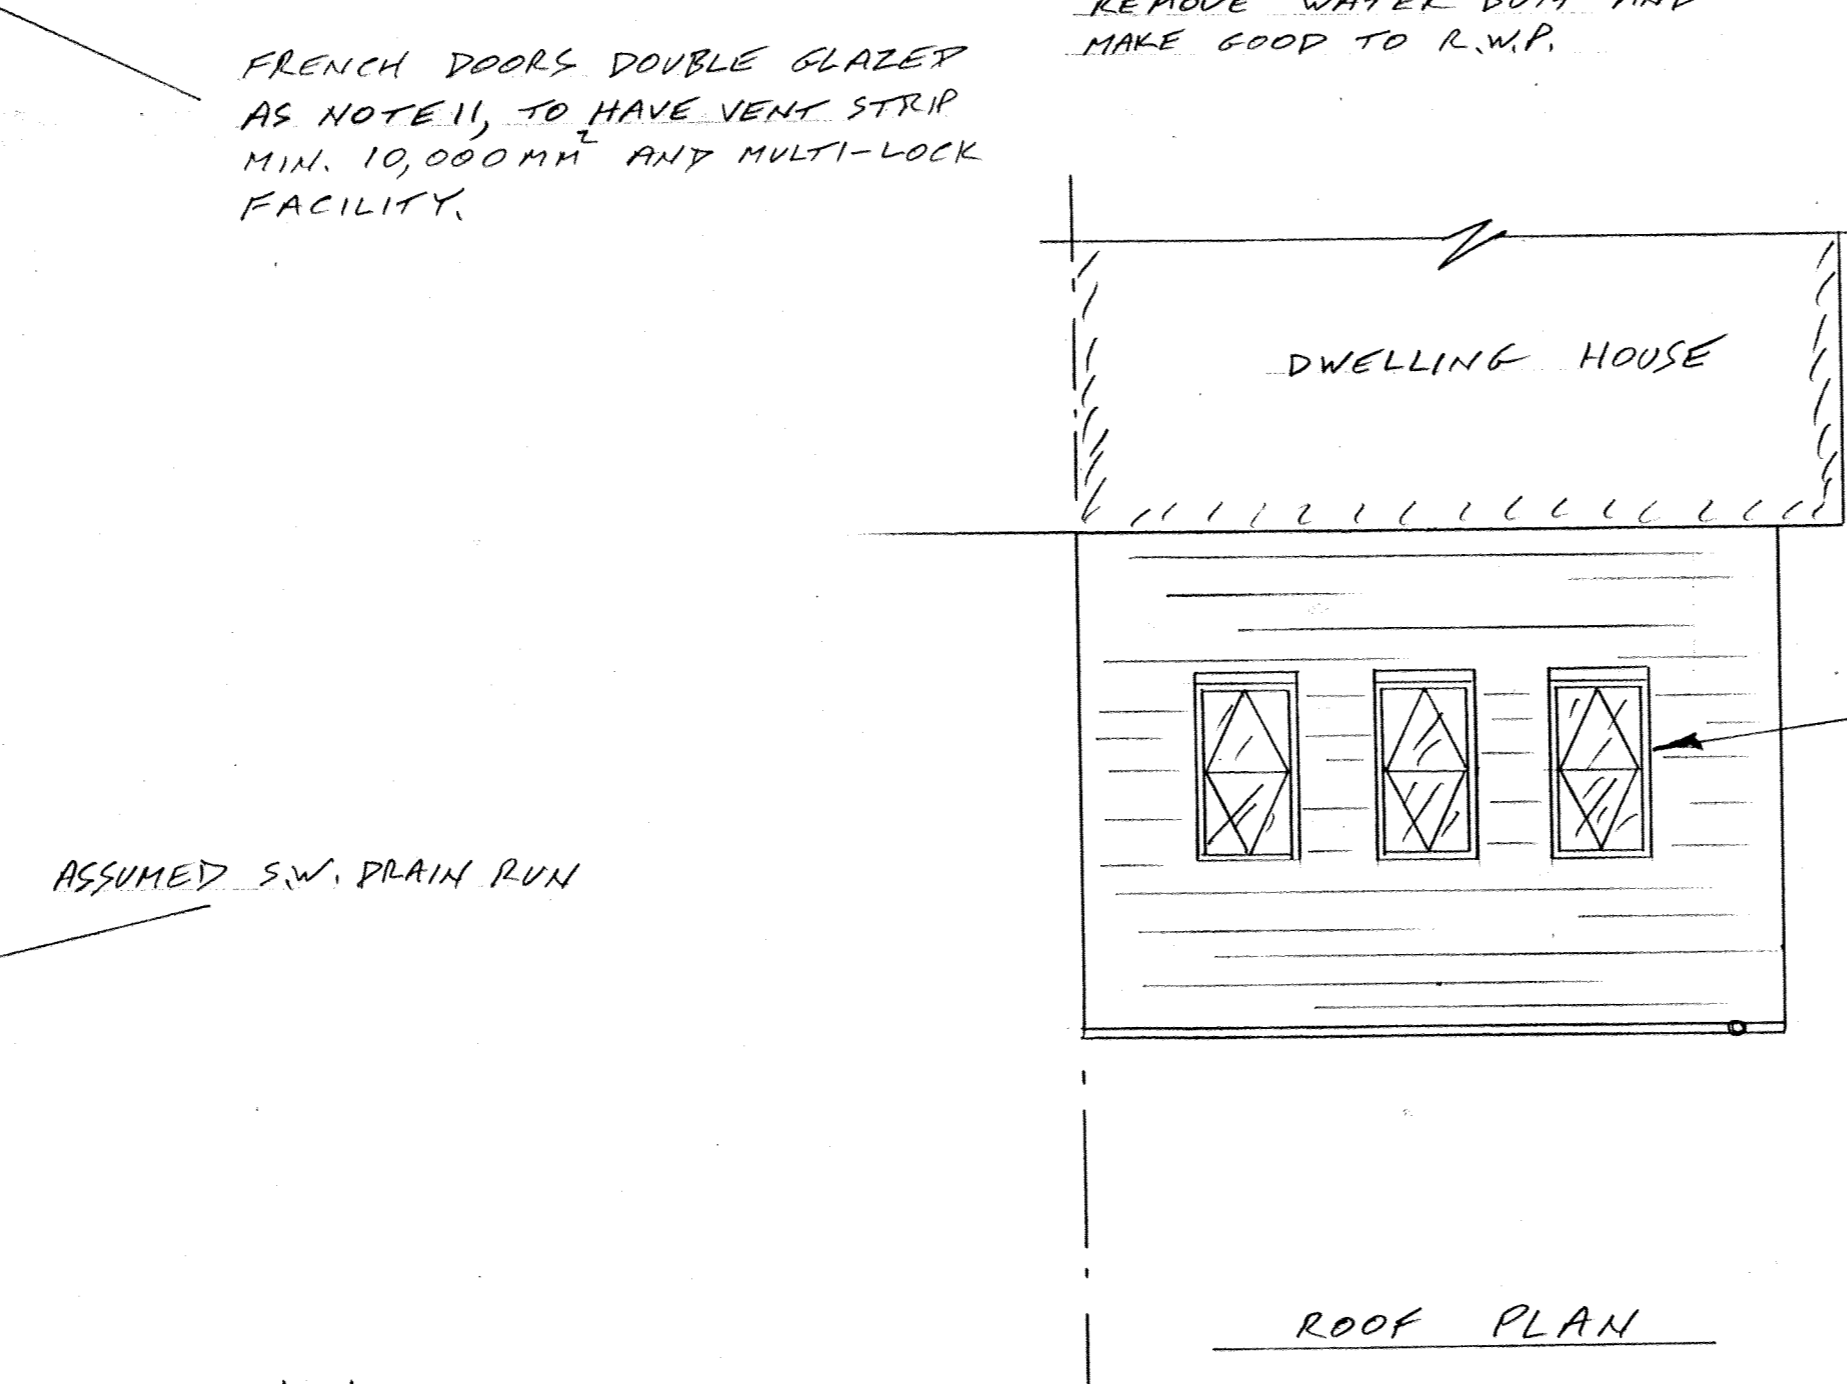 FRENCH DOORS DOUBLE GLAZED
AS NOTE 11, TO HAVE VENT STRIP
MIN. 10,000MM² AND MULTI-LOCK
FACILITY.
REMOVE WATER BUTT AND
MAKE GOOD TO R.W.P.
DWELLING HOUSE
ASSUMED S.W. DRAIN RUN
ROOF PLAN